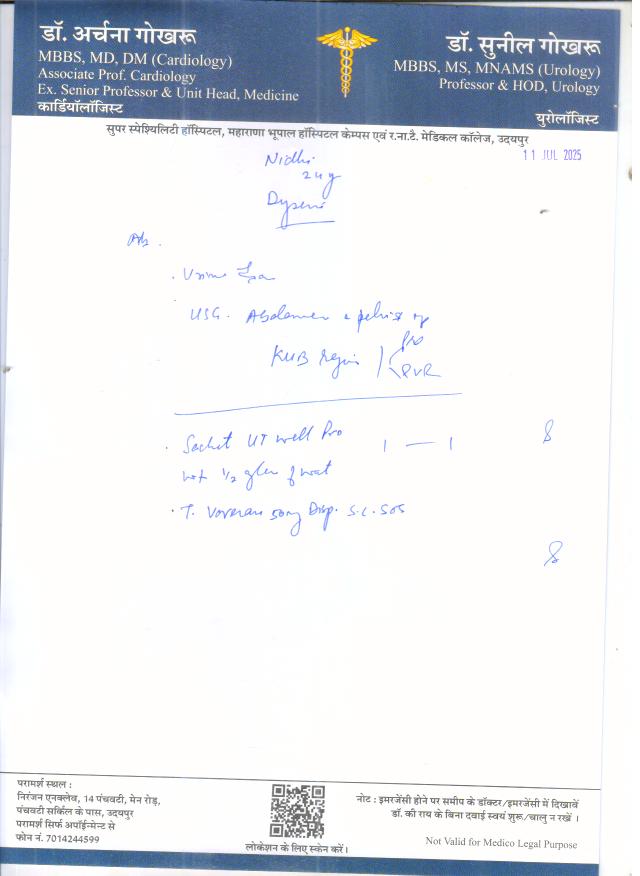 डॉ. अर्चना गोखरू
MBBS, MD, DM (Cardiology)
Associate Prof. Cardiology
Ex. Senior Professor & Unit Head, Medicine
कार्डियॉलॉजिस्ट
डॉ. सुनील गोखरू
MBBS, MS, MNAMS (Urology)
Professor & HOD, Urology
युरोलॉजिस्ट
सुपर स्पेश्यिलिटी हॉस्पिटल, महाराणा भूपाल हॉस्पिटल केम्पस एवं र.ना.टै. मेडिकल कॉलेज, उदयपुर
11 JUL 2025
Nidhi
24y
Urine
USG. Abdomen & pelvis
KUB region
PVR
Sachet UT well Pro 1 — 1
1/2 glass of wat
T. Voveran 50mg Disp. S.C. SOS
परामर्श स्थल :
निरंजन एनक्लेव, 14 पंचवटी, मेन रोड़,
पंचवटी सर्किल के पास, उदयपुर
परामर्श सिर्फ अपॉईन्मेन्ट से
फोन नं. 7014244599
लोकेशन के लिए स्केन करें।
नोट : इमरजेंसी होने पर समीप के डॉक्टर/इमरजेंसी में दिखावें
डॉ. की राय के बिना दवाई स्वयं शुरू/चालु न रखें ।
Not Valid for Medico Legal Purpose